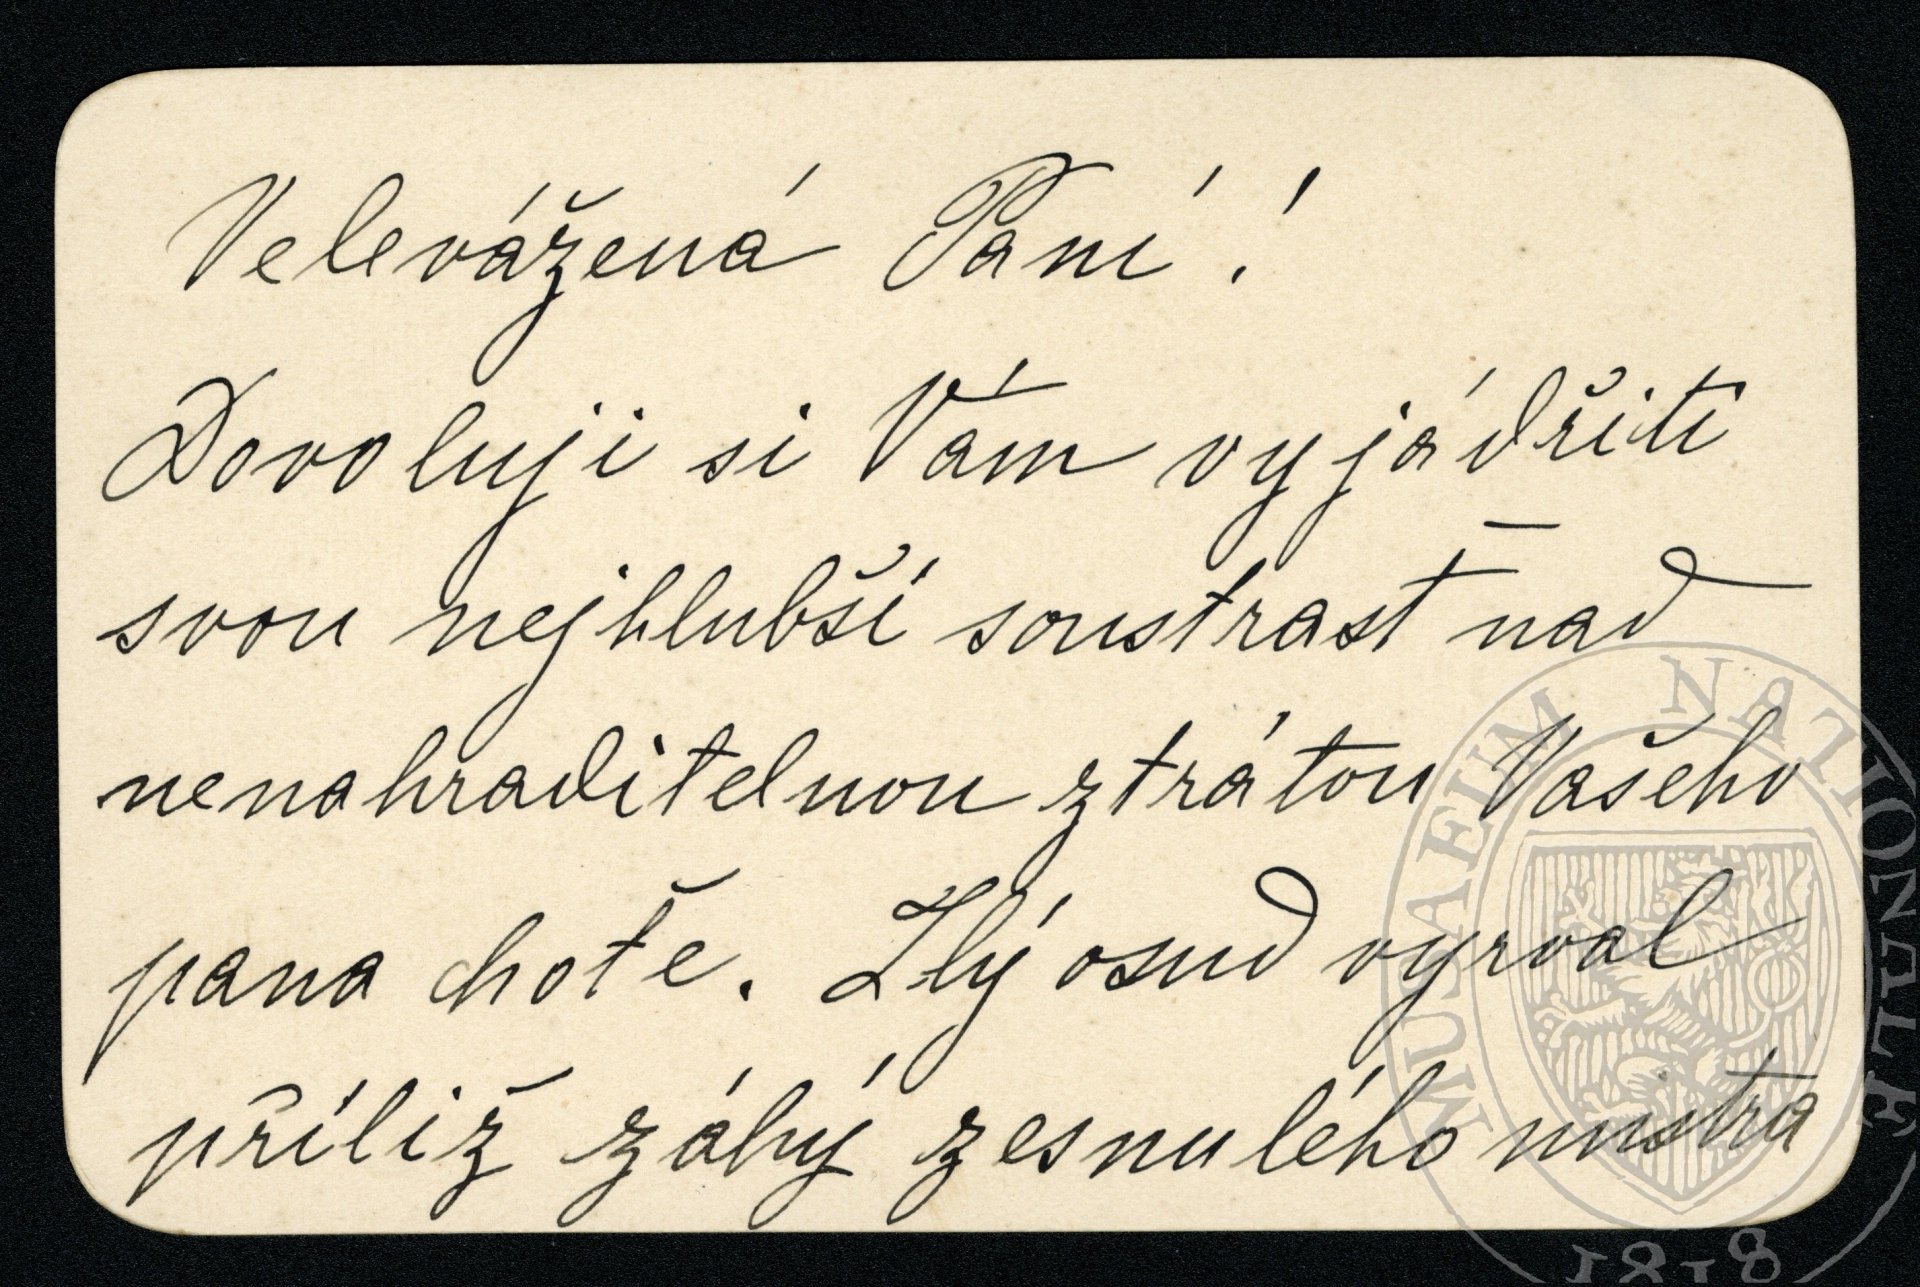 Velevážená Paní!
Dovoluji si Vám vyjádřiti
svou nejhlubší soustrast nad
nenahraditelnou ztrátou Vašeho
pana chotě. Zlý osud vyrval
příliž záhý zesnulého mistra
MUSAEUM NATIONALE
1818